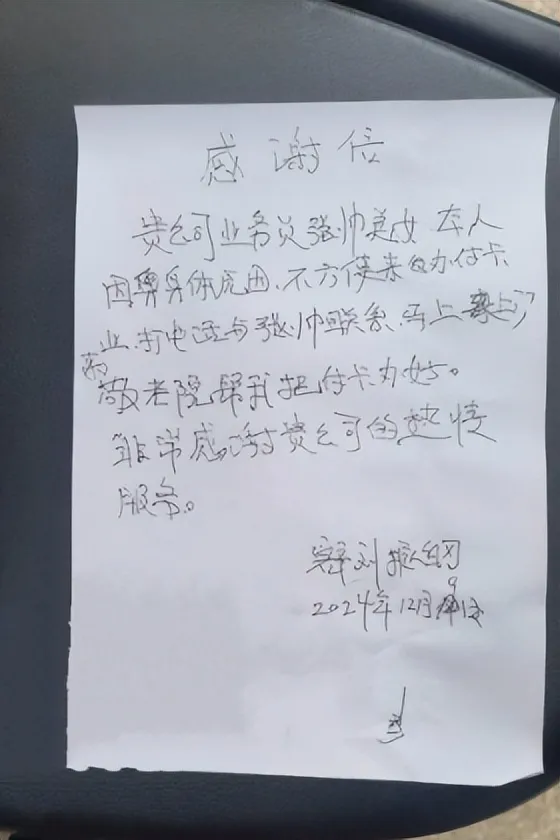 感谢信
贵公司业务员张帅美女 本人
因身体原因,不方便来办付卡
业,打电话与张帅联系,马上上门
来
敬老院帮我把付卡办好。
非常感谢贵公司的热情
服务。
刘振纲
2024年12月9